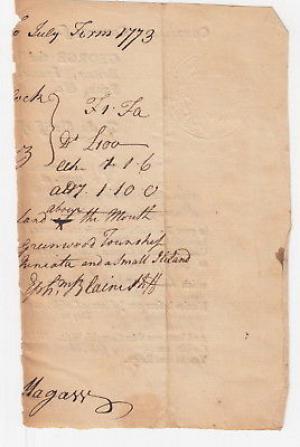 to July Term 1773
ock
Fi Fa
Dt £100
1 1 6
1 10 0
land above the Mouth
Greenwood Township
uneata and a Small Island
Ephm Blaine Shff
Magaw